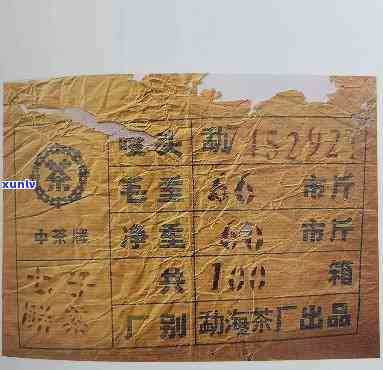 唛头 勐
茶
xunlv
毛重 市斤
中茶牌 净重 60 市斤
七子 共 100 箱
饼茶 厂别 勐海茶厂出品